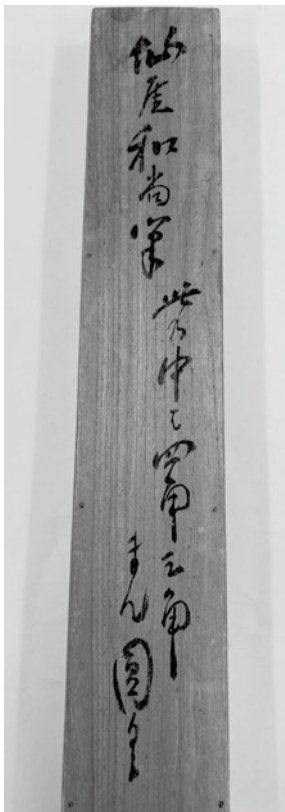 仙厓和尚筆
此の中に四角三角
まん圓